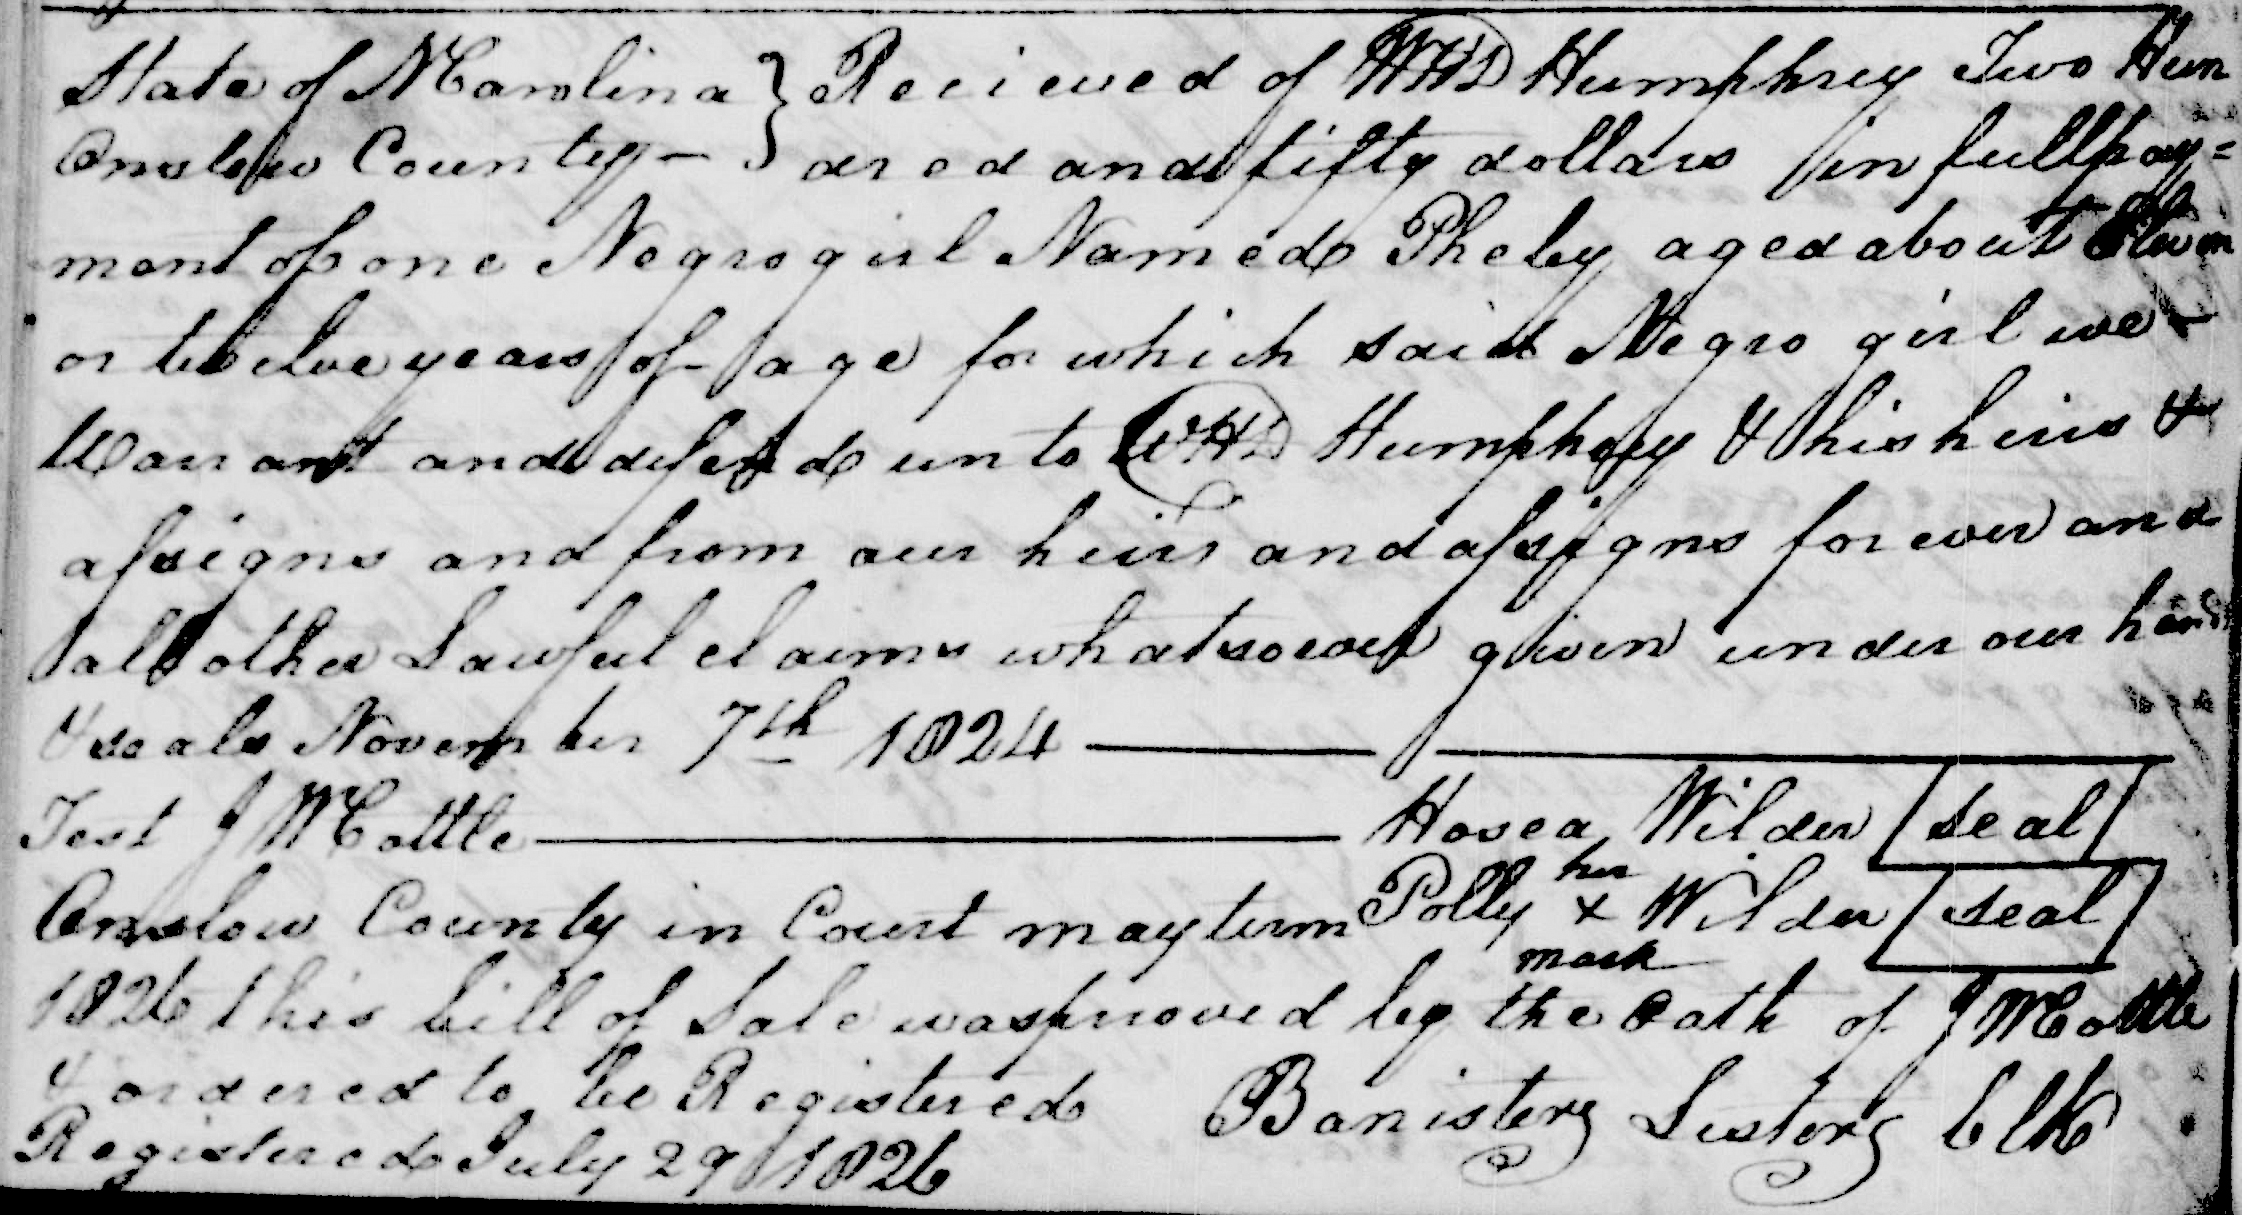 State of N Carolina } Recieved of WHD Humphrey Two Hun
Onslow County – } dred and fifty dollars in full pay=
ment of one Negro girl Named Pheby aged about Eleven
or twelve years of age for which said Negro girl we
Warrant and defend unto WHD Humphrey & his heirs &
assigns and from our heirs and assigns for ever and
all other Lawful claims whatsoever given under our hands
& seals November 7th 1824
Test J W Cottle Hosea Wilder [seal]
her
Onslow County in Court may term Polly x Wilder [seal]
mark
1826 this bill of Sale was proved by the Oath of J W Cottle
& ordered to be Registered Banister Lester Clk
Registered July 29 1826